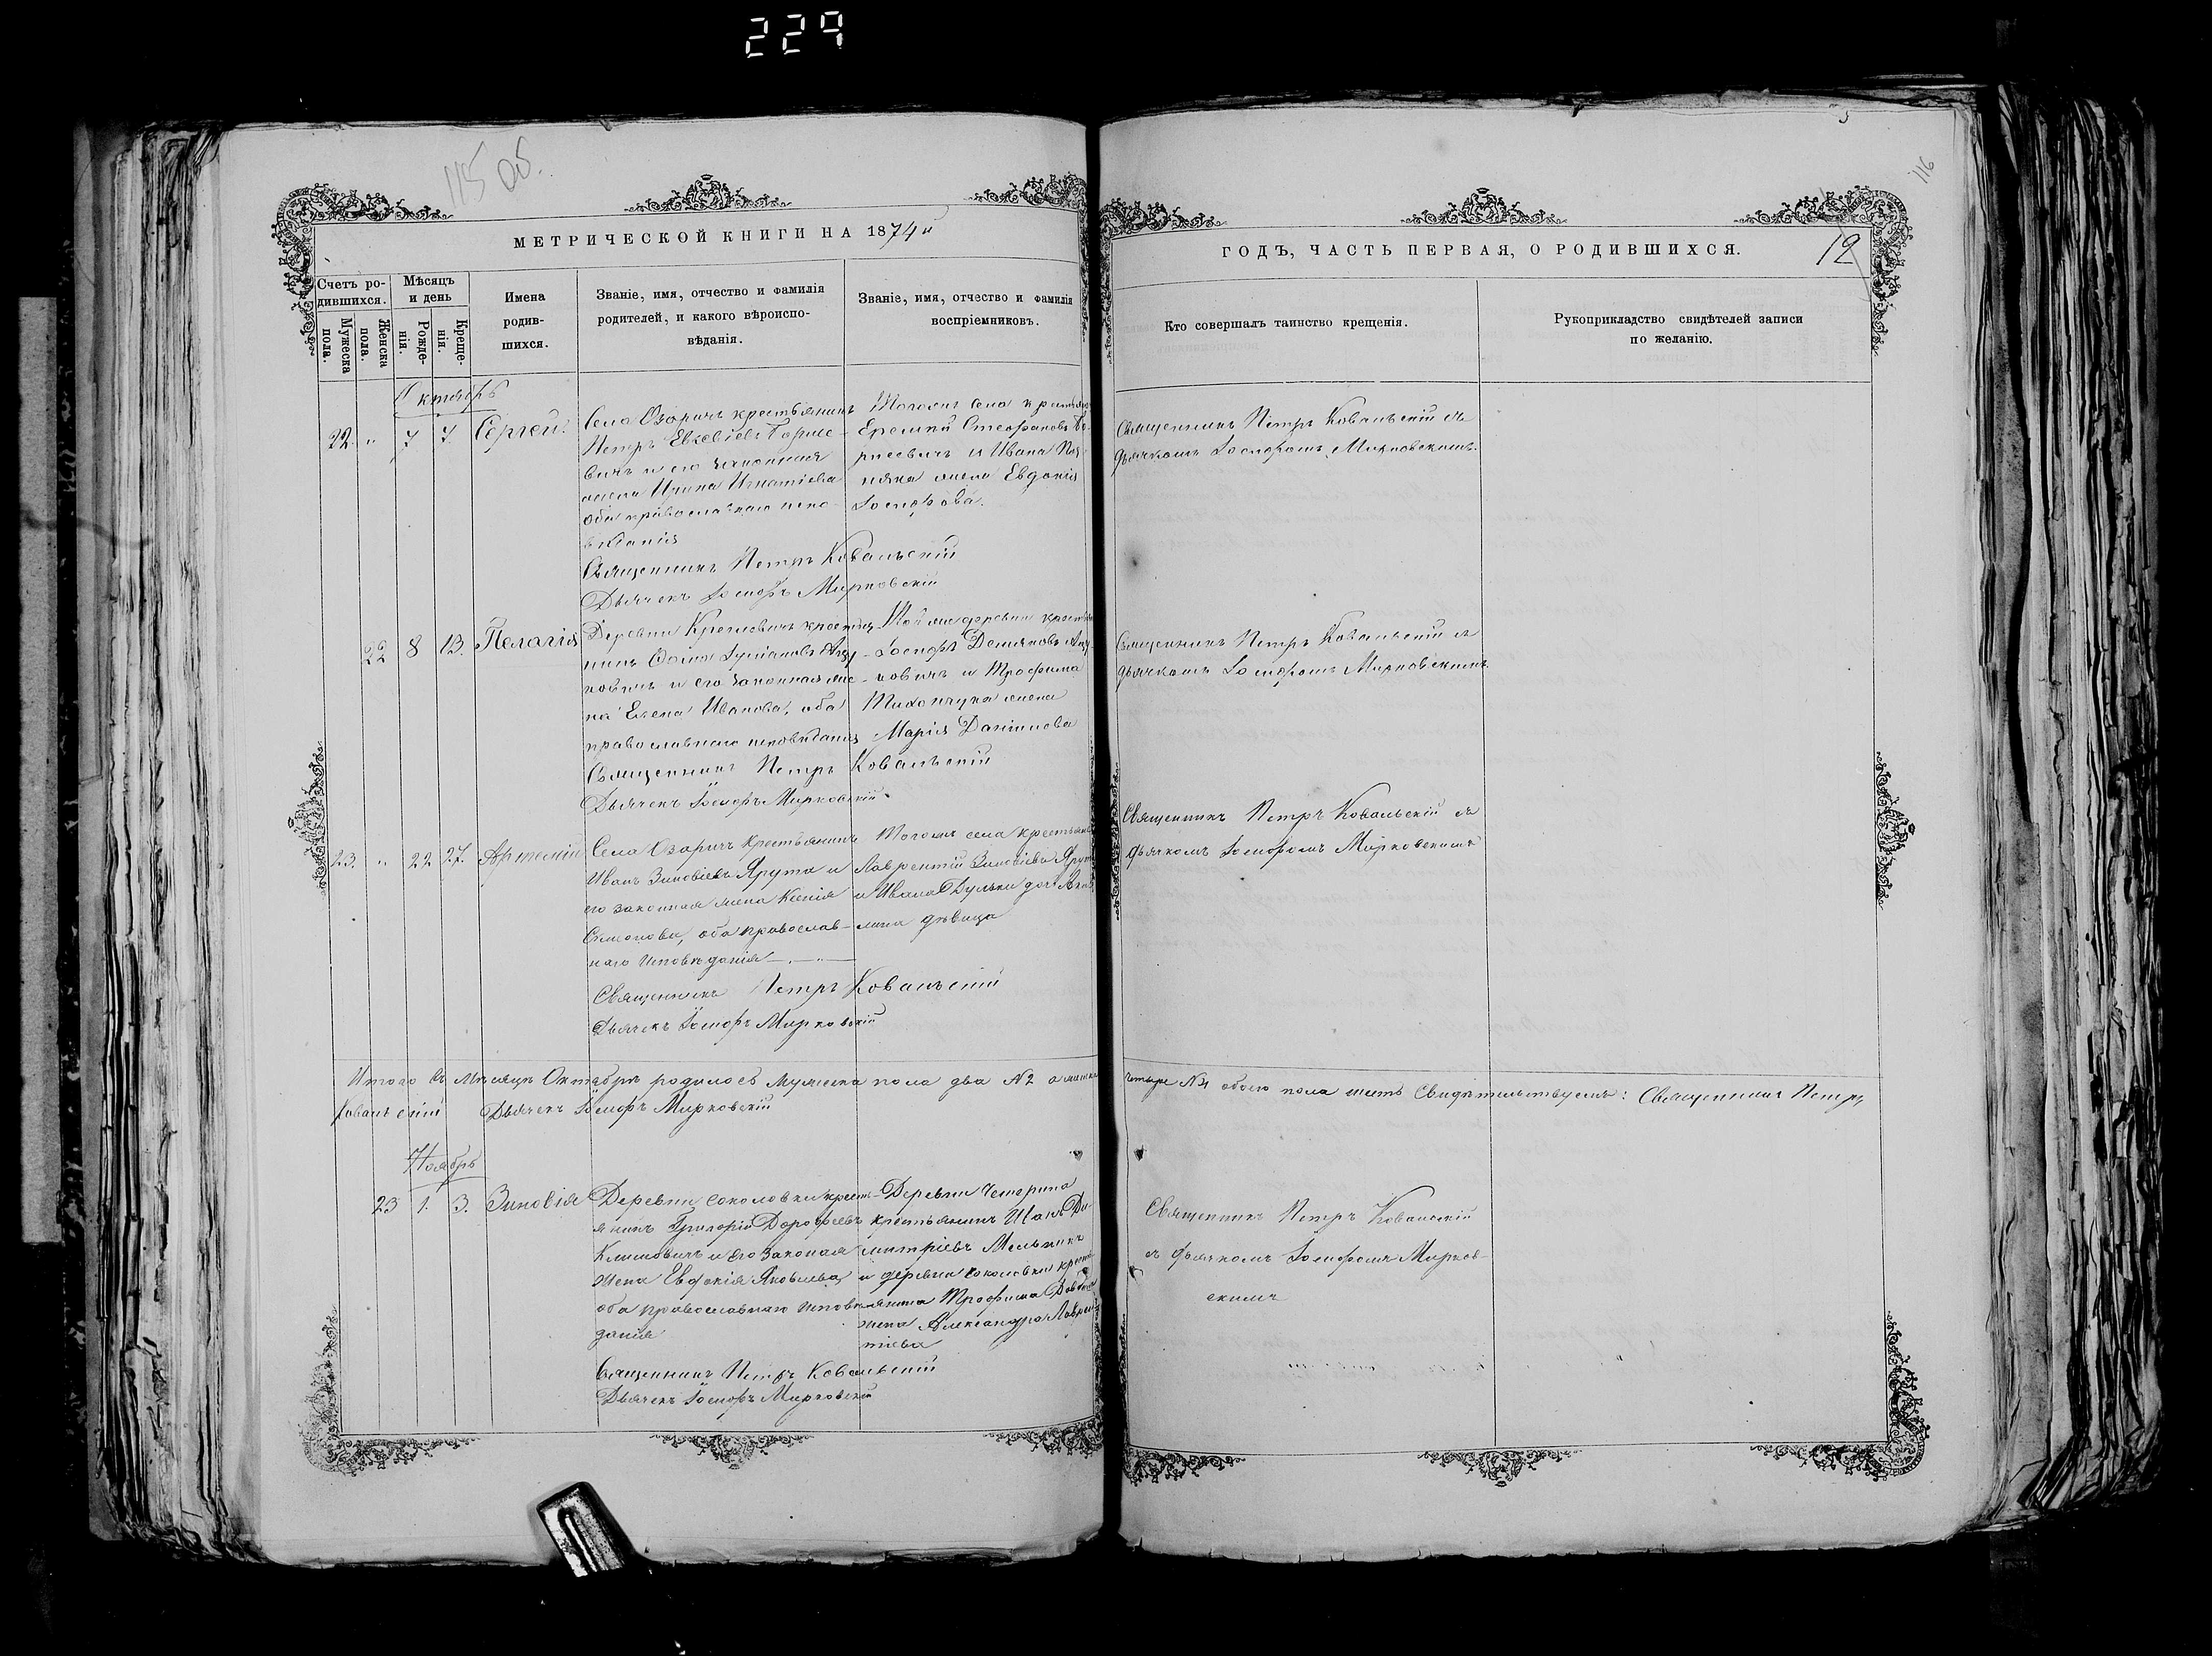 229
115 об.
116
МЕТРИЧЕСКОЙ КНИГИ НА 1874й
ГОДЪ, ЧАСТЬ ПЕРВАЯ, О РОДИВШИХСЯ.
12
Счетъ ро-
дившихся.
Мужеска пола.
Женска пола.
Мѣсяцъ
и день
Рожде-
нія.
Креще-
нія.
Имена
родив-
шихся.
Званіе, имя, отчество и фамилія
родителей, и какого вѣроиспо-
вѣданія.
Званіе, имя, отчество и фамилія
воспріемниковъ.
Кто совершалъ таинство крещенія.
Рукоприкладство свидѣтелей записи
по желанію.
Октябрь
22. „ 7 7. Сергей.
Села Озаричъ крестьянинъ
Петръ Евсевіевъ Борисе-
вичъ и его законная
жена Ирина Игнатіева
оба православнаго испо-
вѣданія
Тогожъ села крестьян
Стефановъ Бо-
рисевичъ и Ивана
жена Евдокія
Іосифова.
Священникъ Петръ Ковальскій съ
дьячкомъ Іосифомъ Мирковскимъ.
Священникъ Петръ Ковальскій
Дьячекъ Іосифъ Мирковскій
22 8 13. Пелагія
Деревни крестья-
нинъ Фома
и его законная же-
на Елена Иванова, оба
православнаго исповѣданія
Той же деревни крестьян
Іосифъ Демяновъ
и Трофима
жена
Марія Даніилова
Священникъ Петръ Ковальскій съ
дьячкомъ Іосифомъ Мирковскимъ.
Священникъ Петръ Ковальскій
Дьячекъ Іосифъ Мирковскій
23. „ 22 27. Артемій
Села Озаричъ крестьянинъ
Иванъ Зиновіевъ Ярута и
его законная жена Ксенія
Симонова, оба православ-
наго исповѣданія
Тогожъ села крестьян
Лаврентій Зиновіевъ Ярут
и Ивана дочь
дѣвица
Священникъ Петръ Ковальскій съ
дьячкомъ Іосифомъ Мирковскимъ
Священникъ Петръ Ковальскій
Дьячекъ Іосифъ Мирковскій
Итого въ мѣсяцѣ Октябрѣ родилось мужеска пола два №2 а женска четыре №4 обоего пола шесть Свидѣтельствуемъ: Священникъ Петръ
Ковальскій Дьячекъ Іосифъ Мирковскій
Ноябрь
23 1. 3. Зиновія
Деревни Соколовки кресть-
янинъ Григорій Дорофеевъ
Климовичъ и его законая
жена Евдокія Яковлева,
оба православнаго исповѣ-
данія
Деревни
крестьянинъ Иванъ Ди-
митріевъ Мельникъ
и деревни Соколовки кресть-
янина Трофима
жена Александра Лаврен-
тіева
Священникъ Петръ Ковальскій
съ дьячкомъ Іосифомъ Мирков-
скимъ
Священникъ Петръ Ковальскій
Дьячекъ Іосифъ Мирковскій